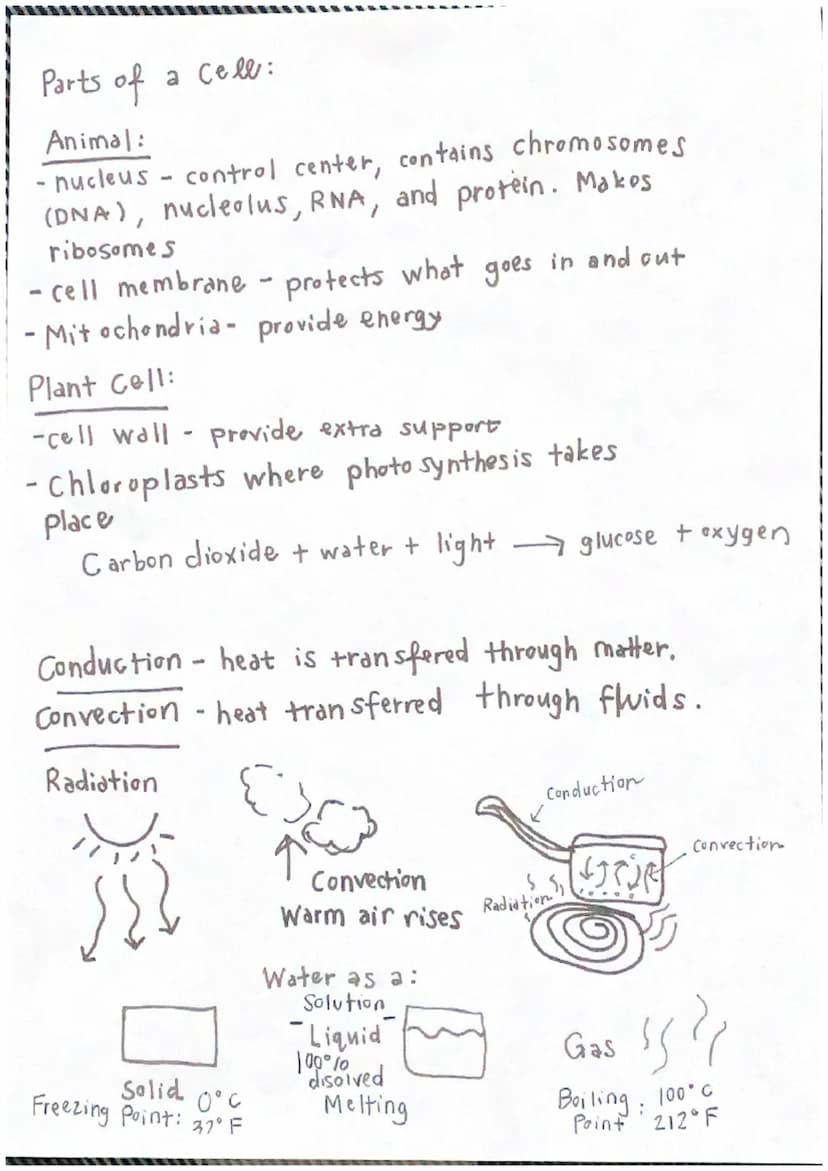 Parts of a Cell:
Animal:
- nucleus - control center, contains chromosomes
(DNA), nucleolus, RNA, and protein. Makes
ribosomes
- cell membrane - protects what goes in and out
- Mitochondria - provide energy
Plant Cell:
- cell wall - provide extra support
- Chloroplasts where photosynthesis takes
place
Carbon dioxide + water + light → glucose + oxygen
Conduction - heat is transfered through matter.
Convection - heat transferred through fluids.
Radiation
Convection
Warm air rises
Conduction
Convection
Radiation
Water as a:
Solution
- Liquid -
100%
disolved
Melting
Solid
Freezing Point: 0°C
32°F
Gas
Boiling Point: 100°C
212°F